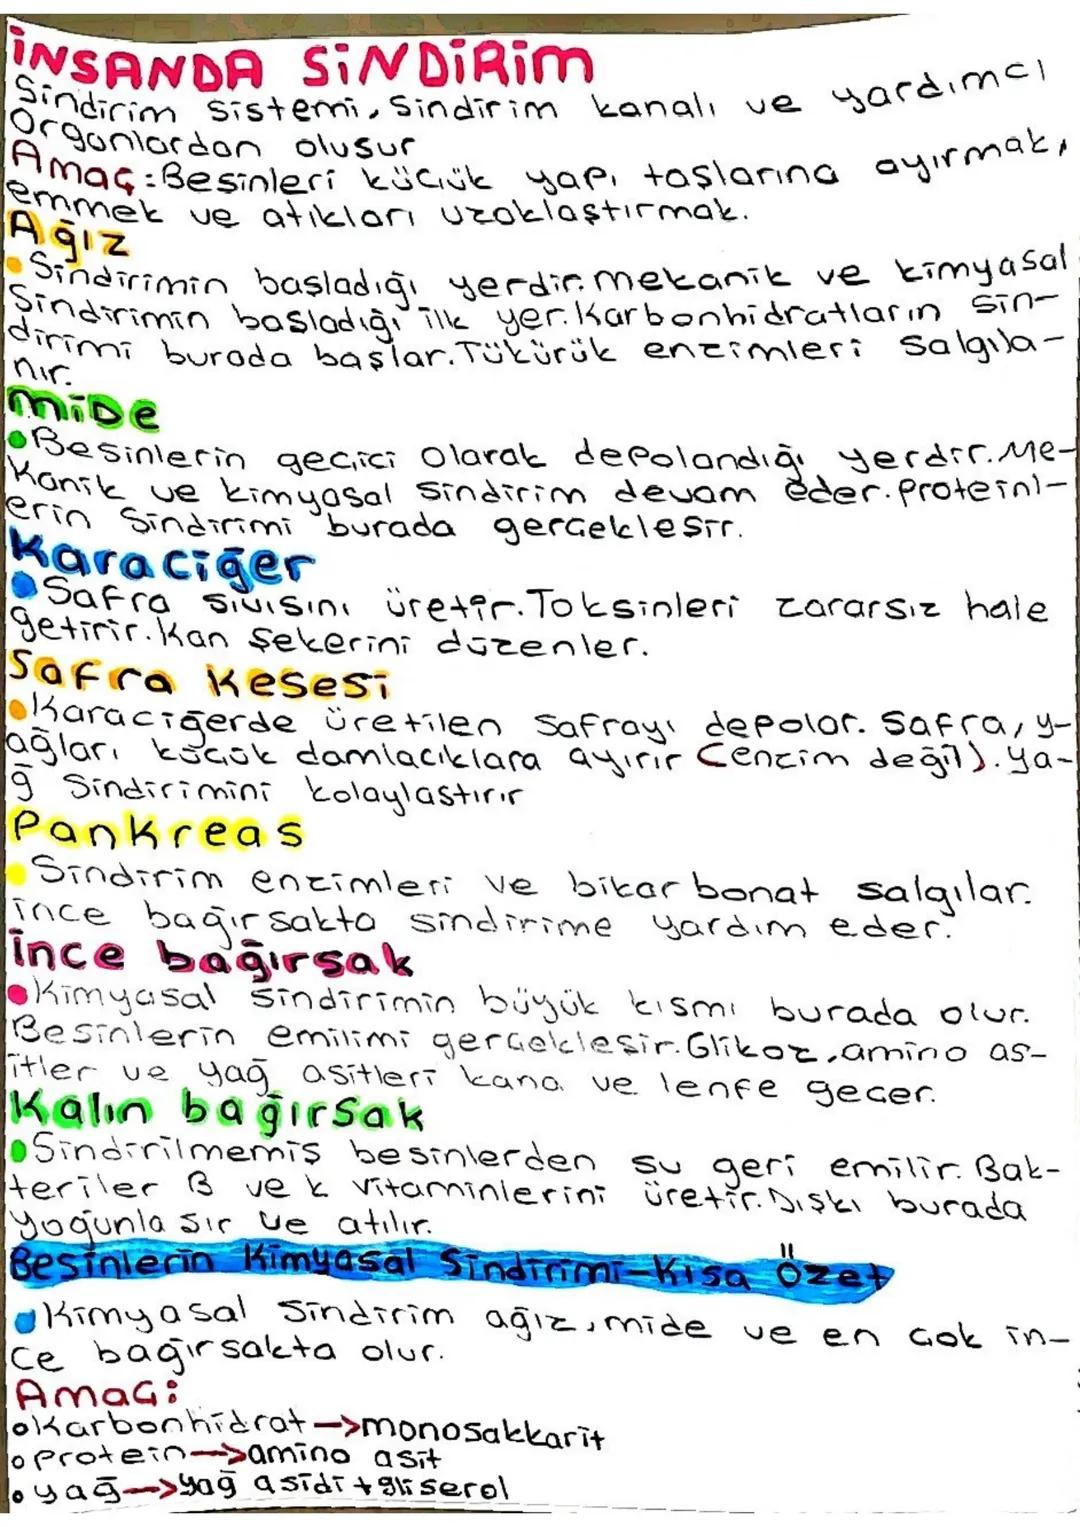 İNSANDA SİNDİRİM
Sindirim sistemi, sindirim kanalı ve yardımcı
organlardan oluşur
Amaç: Besinleri küçük yapı taşlarına ayırmak,
emmek ve atıkları uzaklaştırmak.
Ağız
• Sindirimin başladığı yerdir. mekanik ve kimyasal
Sindirimin başladığı ilk yer. Karbonhidratların sin-
dirimi burada başlar. Tükürük enzimleri salgıla-
nır.
MİDe
• Besinlerin geçici olarak depolandığı yerdir. Me-
kanik ve kimyasal sindirim devam eder. proteinl-
erin sindirimi burada gerçekleşir.
Karaciğer
• Safra sıvısını üretir. Toksinleri zararsız hale
getirir. Kan şekerini düzenler.
Safra Kesesi
• Karaciğerde üretilen safrayı depolar. Safra, y-
ağları küçük damlacıklara ayırır (enzim değil). ya-
ğ sindirimini kolaylaştırır
Pankreas
• Sindirim enzimleri ve bikarbonat salgılar.
ince bağırsakta sindirime yardım eder.
İnce bağırsak
• Kimyasal sindirimin büyük kısmı burada olur.
Besinlerin emilimi gerçekleşir. Glikoz, amino as-
itler ve yağ asitleri kana ve lenfe geçer.
Kalın bağırsak
• Sindirilmemiş besinlerden su geri emilir. Bak-
teriler B ve k vitaminlerini üretir. Dışkı burada
yoğunlaşır ve atılır.
Besinlerin Kimyasal Sindirimi-Kısa Özet
• Kimyasal sindirim ağız, mide ve en çok in-
ce bağırsakta olur.
Amaç:
• Karbonhidrat → monosakkarit
• protein → amino asit
• yağ → yağ asidi + gliserol